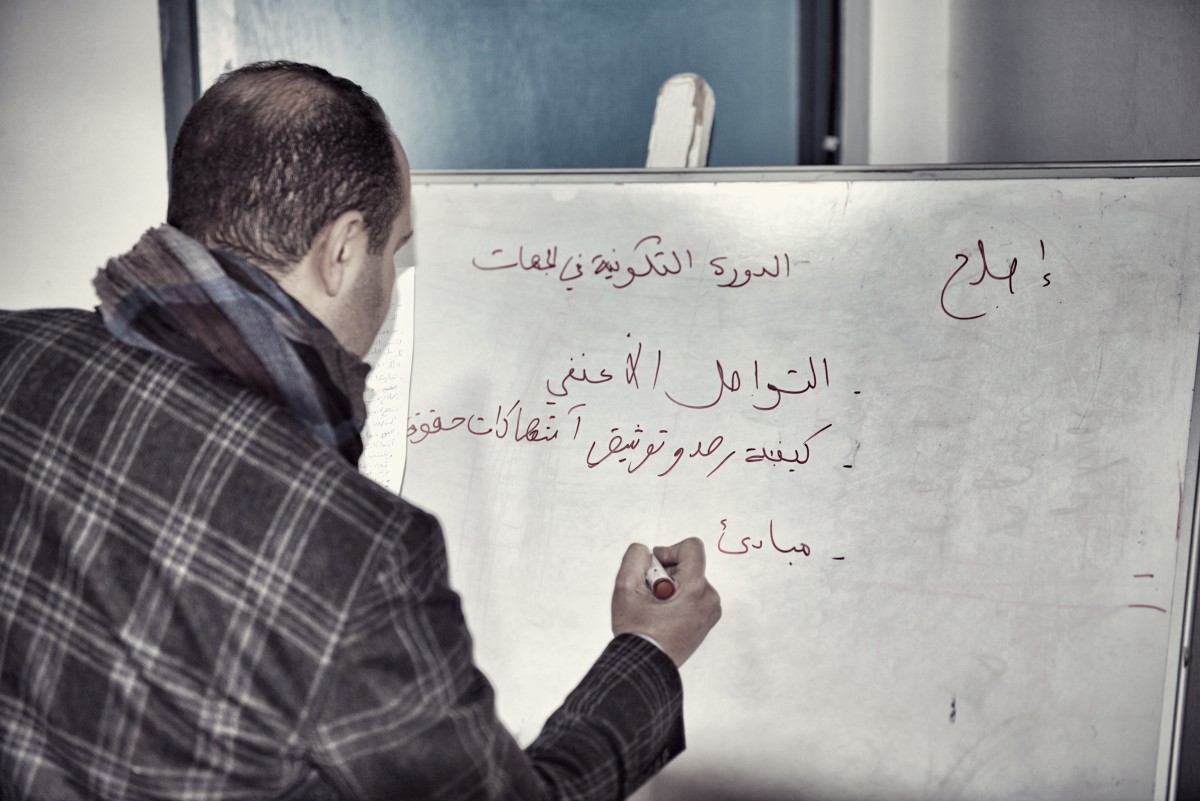 إصلاح
الدورة التكوينية في الجهات
. التواصل الاعنفي
- كيفية رصد وتوثيق آنتهاكات حقوق
- مبادئ